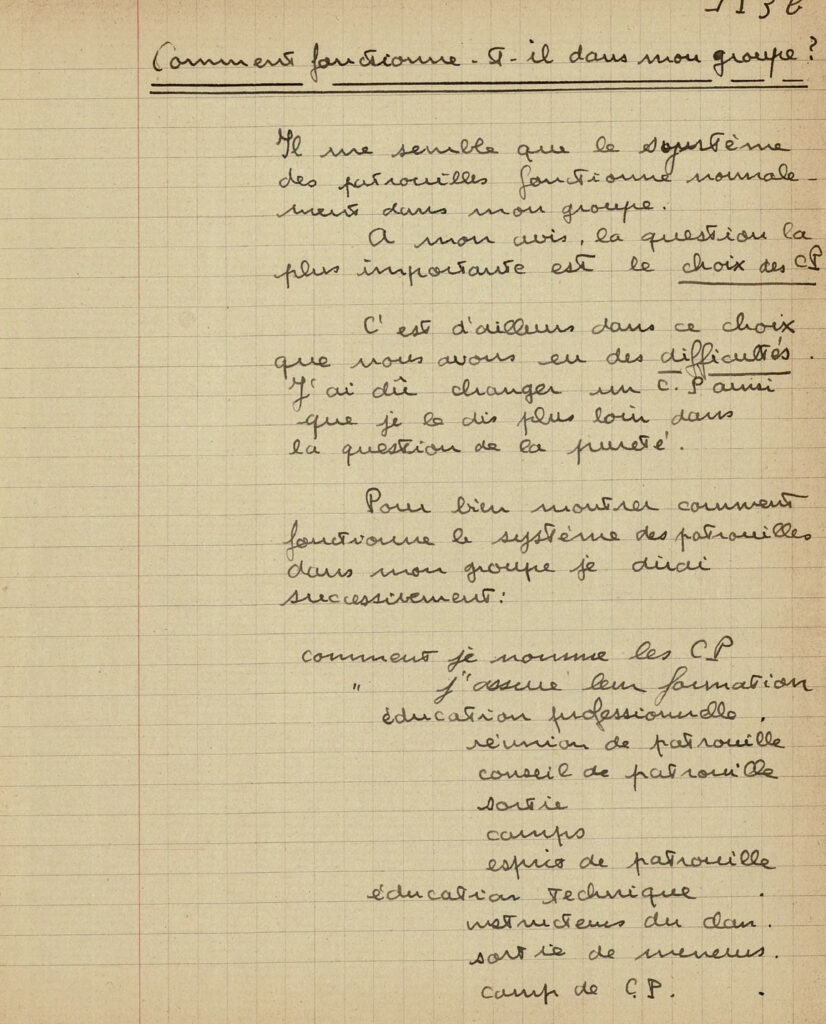 Comment fonctionne-t-il dans mon groupe?
Il me semble que le système
des patrouilles fonctionne normale-
ment dans mon groupe.
A mon avis, la question la
plus importante est le choix des CP
C'est d'ailleurs dans ce choix
que nous avons eu des difficultés.
J'ai dû changer un C.P ainsi
que je le dis plus loin dans
la question de la pureté.
Pour bien montrer comment
fonctionne le système des patrouilles
dans mon groupe je dirai
successivement:
comment je nomme les CP
" j'assure leur formation
éducation professionnelle.
réunion de patrouille
conseil de patrouille
sortie
camps
esprit de patrouille
éducation technique.
instructeurs du clan.
sortie de meneurs.
camp de C.P.